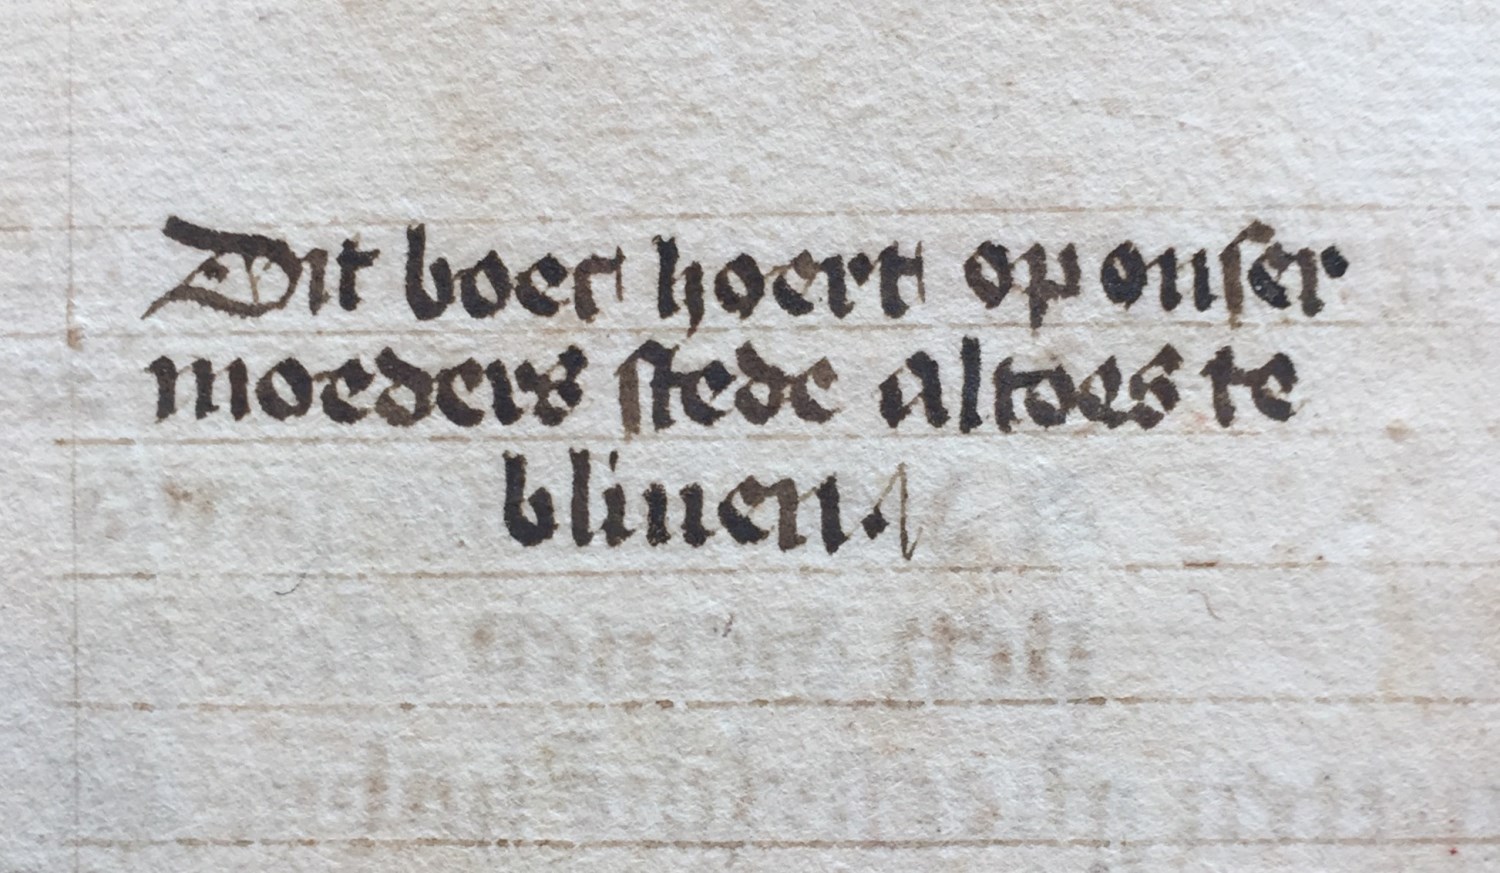 Dit boec hoert op onser
moeders stede altoes te
bliuen.